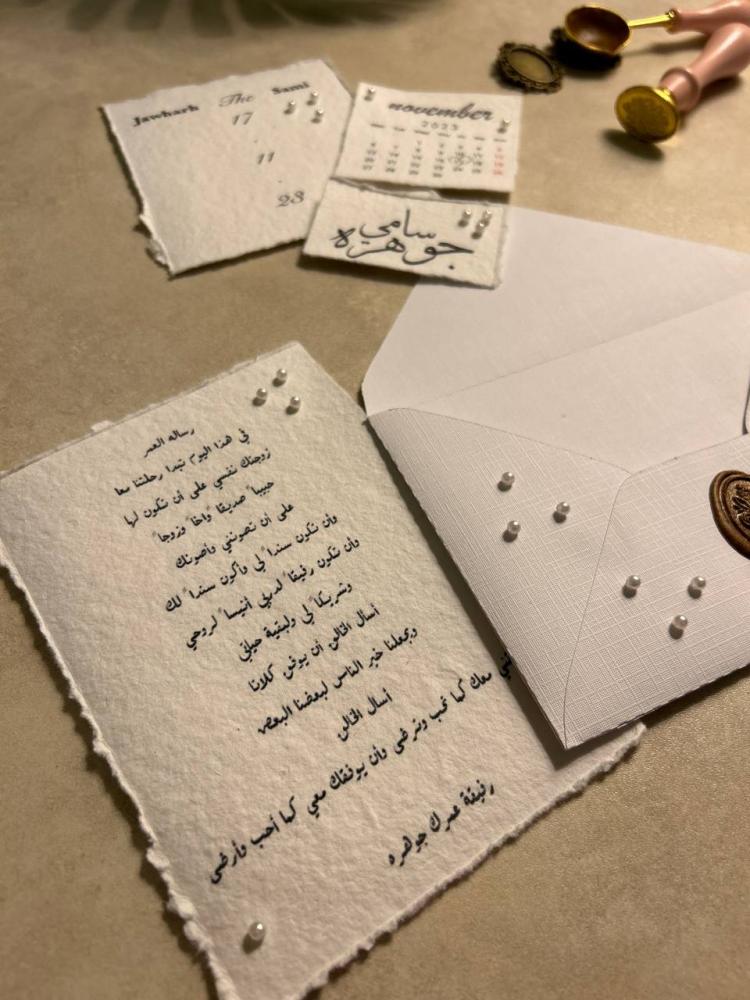 Jawharh The Sami
17
11
23
november
2023
سامي
جوهره
رساله العمر
في هذا اليوم تبدا رحلتنا معا
زوجتك نفسي على أن تكون لها
حبيبا ً صديقا ً واخا ً وزوجا ً
على أن تصونني وأصونك
وأن تكون سندا ً لي وأكون سندا ً لك
وأن تكون رفيقا ً لدربي أنيسا ً لروحي
وشريكا ً لي ولبقية حياتي
أسأل الخالق أن يوفق كلانا
ويجعلنا خير الناس لبعضنا البعض
أسأل الخالق
معك كما تحب وترضى وأن يوفقك معي كما أحب وأرضى
رفيقة عمرك جوهره